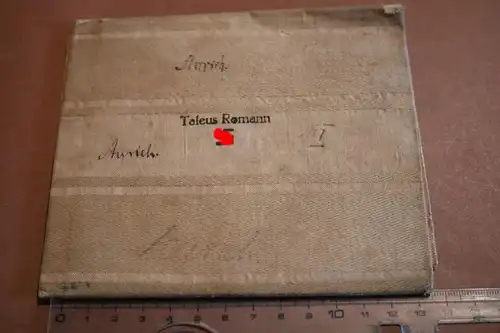 Aurich
Tateus Romann
I
Aurich
VI
0 1 2 3 4 5 6 7 8 9 10 11 12 13